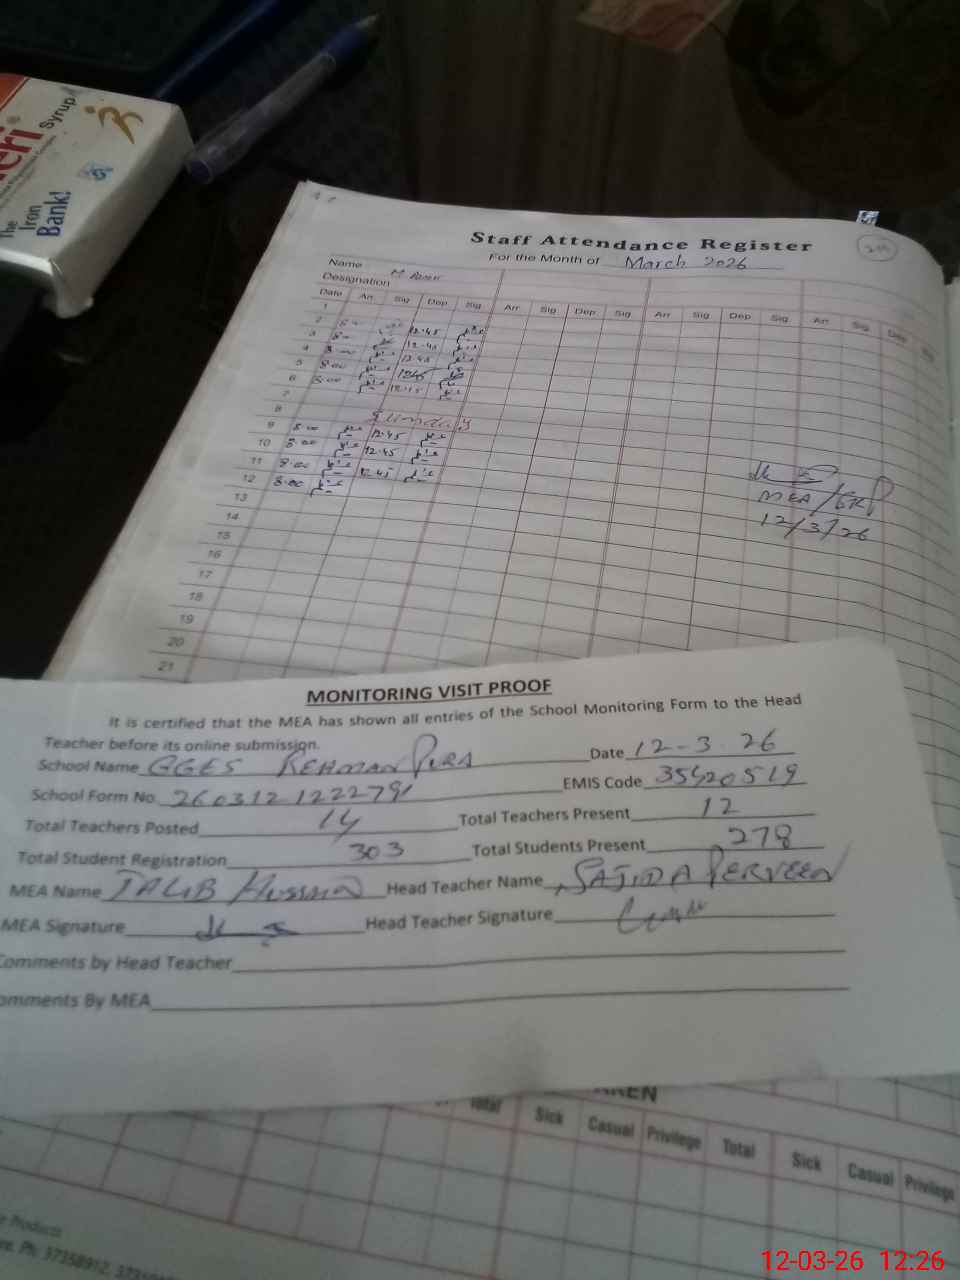 Syrup
The
Iron
Bank!
Staff Attendance Register
For the Month of March 2026
Name
Designation
Date Arr Sig Dep Sig Arr Sig Dep Sig Arr Sig Dep Sig Arr Sig Dep Sig
1
2 12.45
3 8- 12.45
4 8-00 12.45
5 8-00 1245
6 8-00 12.45
7
8 Sunday
9 8-00 12.45
10 8-00 12.45
11 8-00 12.45
12 8-00
13
14
15
16
17
18
19
20
21
MEA/
12/3/26
MONITORING VISIT PROOF
It is certified that the MEA has shown all entries of the School Monitoring Form to the Head
Teacher before its online submission.
School Name GGES REHMAN PURA Date 12-3.26
School Form No. EMIS Code 35420519
Total Teachers Posted 14 Total Teachers Present 12
Total Student Registration 303 Total Students Present 278
MEA Name TALIB HUSSAIN Head Teacher Name SAJIDA PERVEEN
MEA Signature Head Teacher Signature
Comments by Head Teacher
omments By MEA
Total Sick Casual Privilege Total Sick Casual Privilege
Products
Ph: 37358912,
12-03-26 12:26